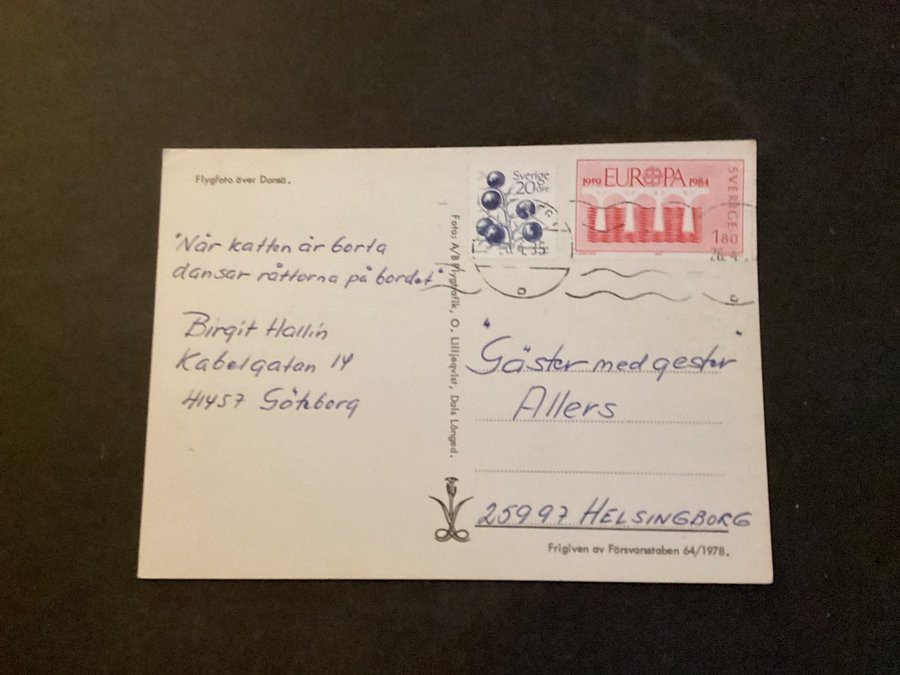 Flygfoto över Donsö.
"När katten är borta
dansar råttorna på bordet"
Birgit Hallin
Kabelgatan 14
41457 Göteborg
Foto: A/B Flygtrafik, O. Lilljeqvist, Dals Långed.
Sverige
20 öre
1959 EUROPA 1984
SVERIGE
1.80
"Gäster med gester"
Allers
25997 HELSINGBORG
Frigiven av Försvarsstaben 64/1978.